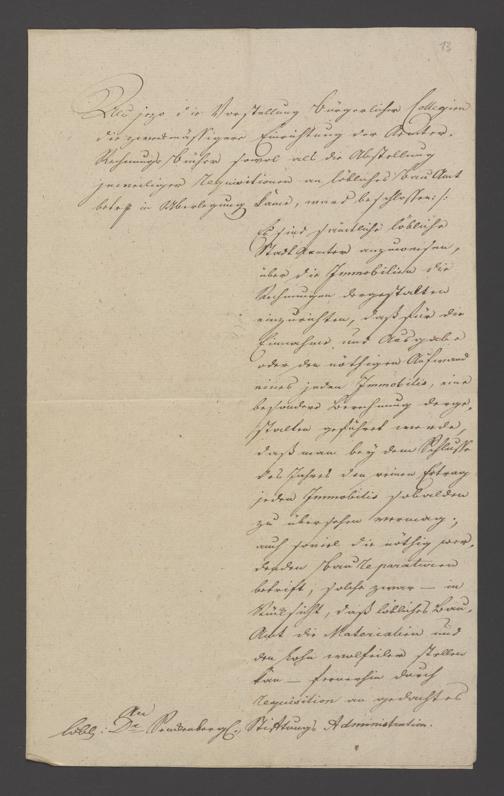 13
Als jezo die Vorstellung bürgerlicher Collegien
die zweckmässigere Einrichtung der Aemter-
Rechnungs Bücher sowol als die Abstellung
jeweiliger Requisitionen an löbliches Bau Amt
betref in Uberlegung kame, ward beschlossen:
Es sind sämtliche löbliche
Stadt Aemter anzuweisen,
über die Immobilien die
Rechnungen dergestalten
einzurichten, daß für die
Einnahme und Ausgabe
oder den nöthigen Aufwand
eines jeden Immobilis, eine
besondere Berechnung derge-
stalten geführet werde,
daß man bey dem Schlusse
des Jahres den reinen Ertrag
jeden Immobilis sobalden
zu übersehen vermag,
auch soviel die nöthig wer-
denden Bau Reparaturen
betrift, solche zwar – in
Rücksicht, daß löbliches Bau-
Amt die Materialien und
den Lohn wolfeiler stellen
kan – fernerhin durch
Requisition an gedachtes
An
löbl: Dr. Senckenbergl. Stiftungs Administration.